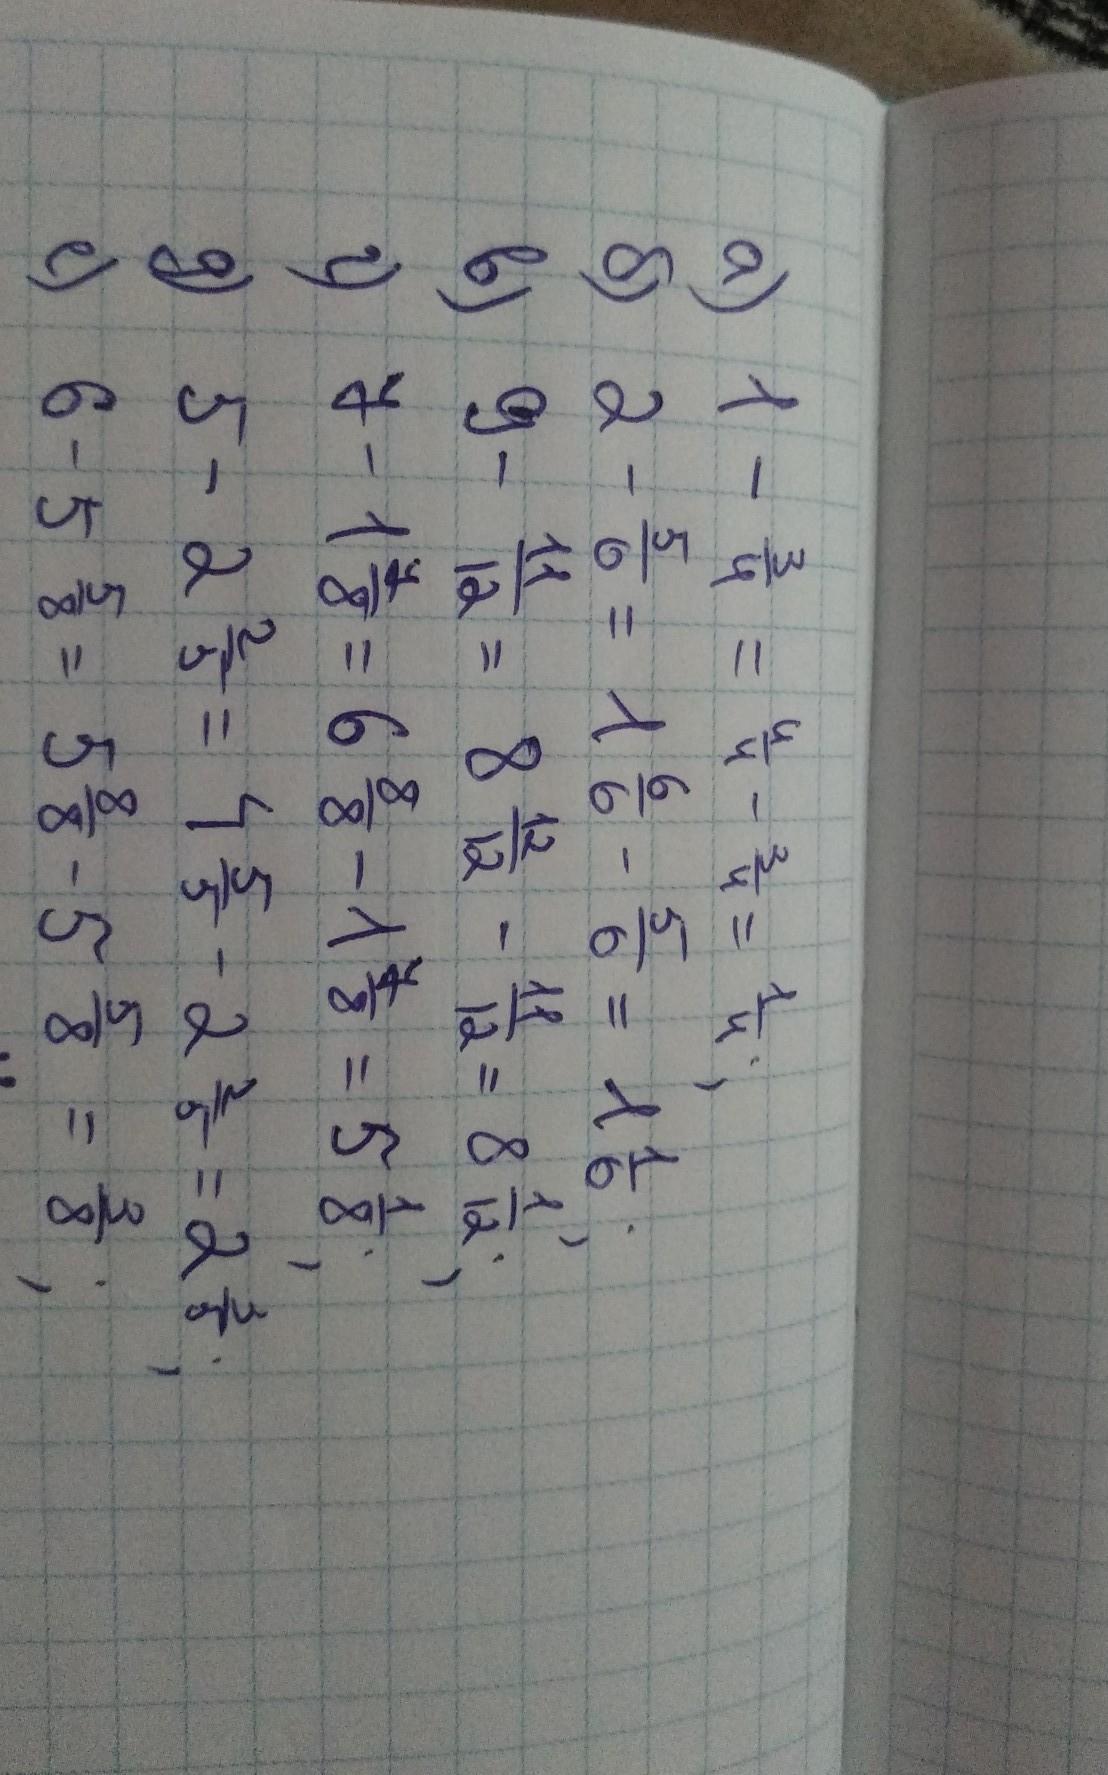 а) 1 - 3/4 = 4/4 - 3/4 = 1/4;
б) 2 - 5/6 = 1 6/6 - 5/6 = 1 1/6;
в) 9 - 11/12 = 8 12/12 - 11/12 = 8 1/12;
г) 7 - 1 7/8 = 6 8/8 - 1 7/8 = 5 1/8;
д) 5 - 2 2/5 = 4 5/5 - 2 2/5 = 2 3/5;
е) 6 - 5 5/8 = 5 8/8 - 5 5/8 = 3/8;